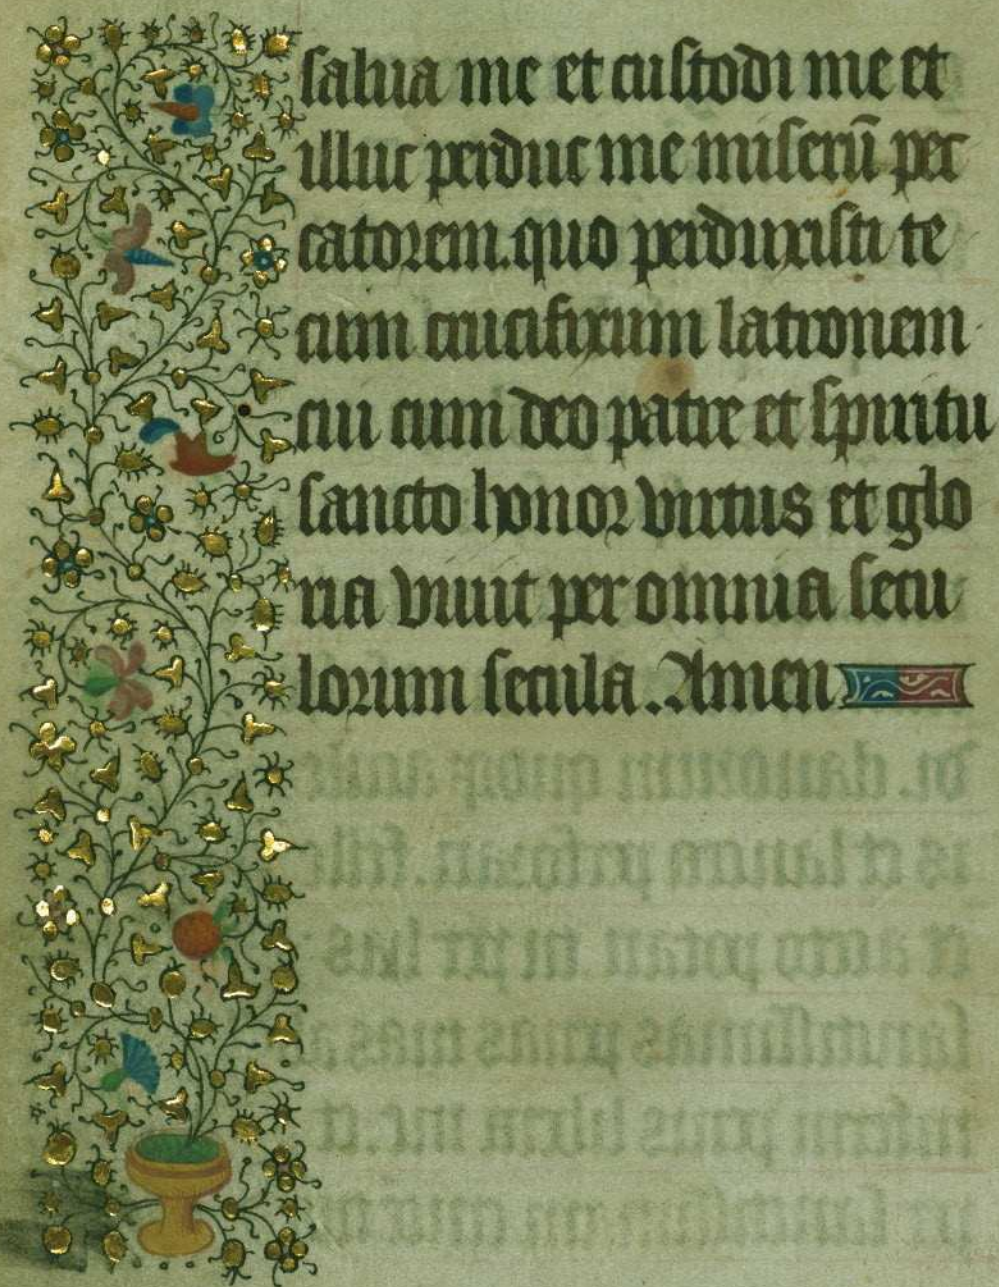 salua me et custodi me et
illuc perduc me miserū pec
catorem. quo perduxisti te
cum crucifixum latronem
cui cum deo patre et spiritu
sancto honor virtus et glo
ria viuit per omnia secu
lorum secula. Amen